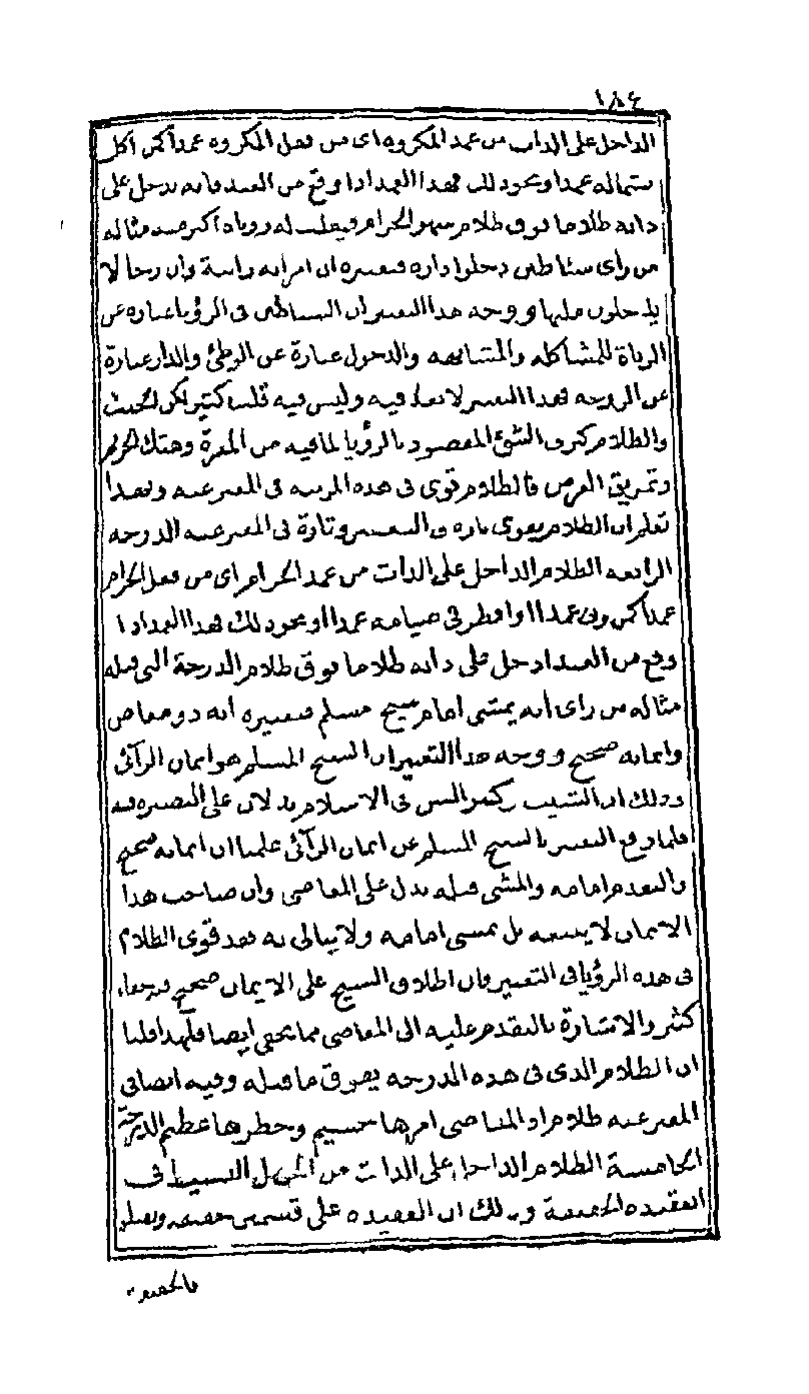 ١٨٤
الداخل على الذات من عمد المكروه اى من فعل المكروه عمدا كمن اكل
بشماله عمدا ونحو ذلك فهذا العمد اذا وقع من العبد فانه يدخل على
ذاته ظلاما فوق ظلام سهو الحرام فيقلب له رؤياه اكثر منه مثاله
من راى شياطين دخلوا داره فتعبيره ان امرأته زانية وان رجالا
يدخلون عليها ووجه هذا التعبير ان الشياطين فى الرؤيا عبارة عن
الزناة للمشاكله والمشابهه والدخول عبارة عن الوطئ والدار عبارة
عن الزوجه فهذا التعبير لا بعد فيه وليس فيه قلب كثير لكن الخبث
والظلام كثر فى الشئ المقصود بالرؤيا لما فيه من المعرة وهتك الحريم
وتمزيق العرض فالظلام قوى فى هذه المرتبه فى المعبر عنه وبهذا
تعلم ان الظلام يقوى تارة فى التعبير وتارة فى المعبر عنه الدرجه
الرابعه الظلام الداخل على الذات من عمد الحرام اى من فعل الحرام
عمدا كمن زنى عمدا او افطر فى صيامه عمدا او نحو ذلك فهذا العمد اذا
وقع من العبد ادخل على ذاته ظلاما فوق ظلام الدرجة التى قبله
مثاله من راى انه يمشى امام شيخ مسلم فتعبيره انه ذو معاص
وايمانه صحيح ووجه هذا التعبير ان الشيخ المسلم هو ايمان الرآئى
وذلك ان الشيب وكبر السن فى الاسلام يدلان على التبصره فيه
فلما وقع التعبير بالشيخ المسلم عن ايمان الرآئى علمنا ان ايمانه صحيح
والتقدم امامه والمشى قبله يدل على المعاصى وان صاحب هذا
الايمان لا يتبعه بل يمشى امامه ولا يبالى به فقد قوى الظلام
فى هذه الرؤيا فى التعبير فان اطلاق الشيخ على الايمان صحيح فيه خفاء
كثير والاشارة بالتقدم عليه الى المعاصى مما يخفى ايضا فلهذا قلنا
ان الظلام الذى فى هذه الدرجه يفوق ما قبله وفيه ايضا فى
المعبر عنه ظلام اذ المعاصى امرها جسيم وخطرها عظيم الدرجة
الخامسة الظلام الداخل على الذات من الجهل البسيط فى
العقيده الخفيفة وذلك ان العقيده على قسمين خفيفه وثقيله
فالخفيفة